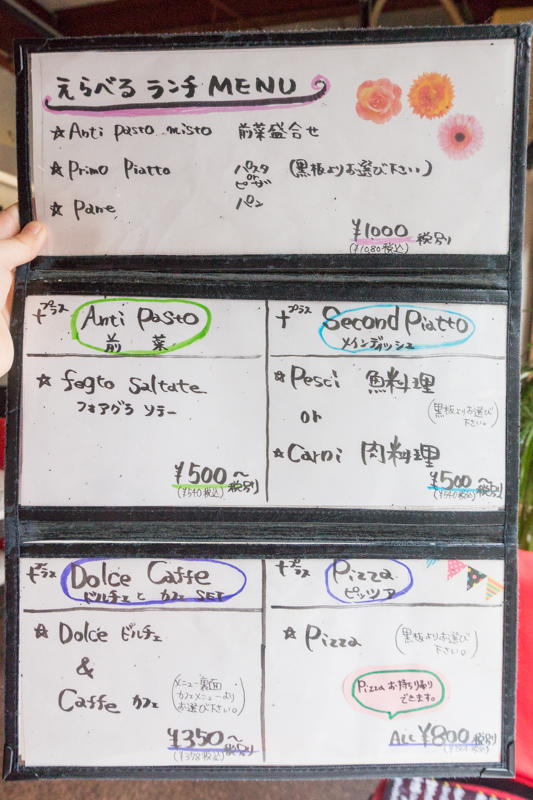 えらべる ランチ MENU
☆ Anti pasto misto 前菜盛合せ
☆ Primo Piatto パスタ or ピザ (黒板よりお選び下さい)
☆ Pane パン
¥1000 税別
(¥1080税込)
+プラス Anti Pasto
前菜
☆ fegto saltate
フォアグラ ソテー
¥500〜税別
(¥540税込)
+プラス Second Piatto
メインディッシュ
☆ Pesci 魚料理
or
(黒板よりお選び下さい。)
☆ Carni 肉料理
¥500〜税別
(¥540税込)
+プラス Dolce Caffe
ドルチェ と カフェ SET
☆ Dolce ドルチェ
&
Caffe カフェ
(メニュー裏面
カフェメニューより
お選び下さい。)
¥350〜税別
(¥378税込)
+プラス Pizza
ピッツア
☆ Pizza (黒板よりお選び
下さい。)
Pizzaお持ち帰り
できます。
ALL ¥800税別